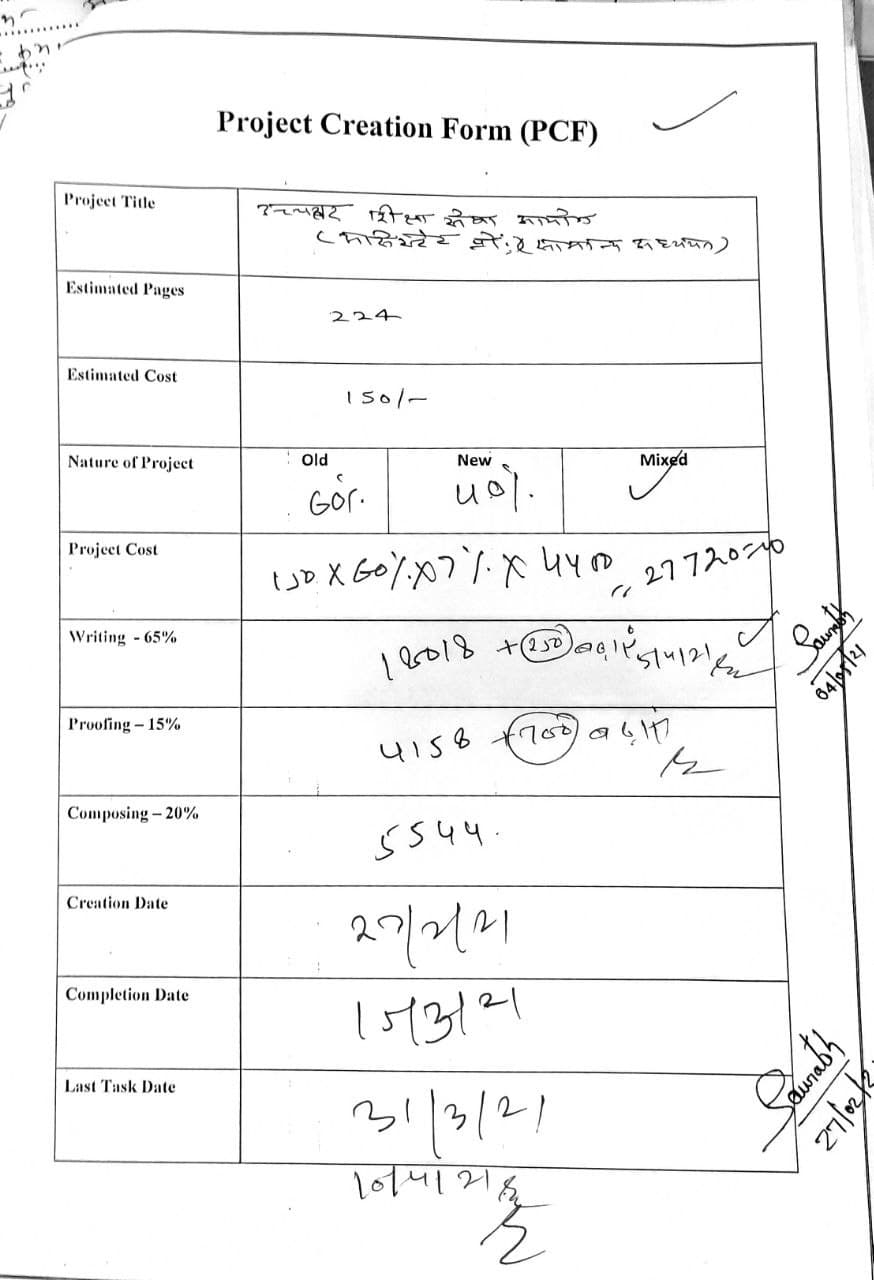 Project Creation Form (PCF)
Project Title
उच्चतर शिक्षा सेवा आयोग
(असिस्टेंट प्रो; सामान्य अध्ययन)
Estimated Pages
224
Estimated Cost
150/-
Nature of Project
Old New Mixed
60%. 40%. ✓
Project Cost
150 X 60%. X 7%. X 4400 = 27720=00
Writing - 65%
18018 + 250 5/4/21
Saurabh
04/05/21
Proofing – 15%
4158 + 700
Composing – 20%
5544.
Creation Date
27/2/21
Completion Date
15/3/21
Last Task Date
31/3/21
Saurabh
27/02/2
10/4/21